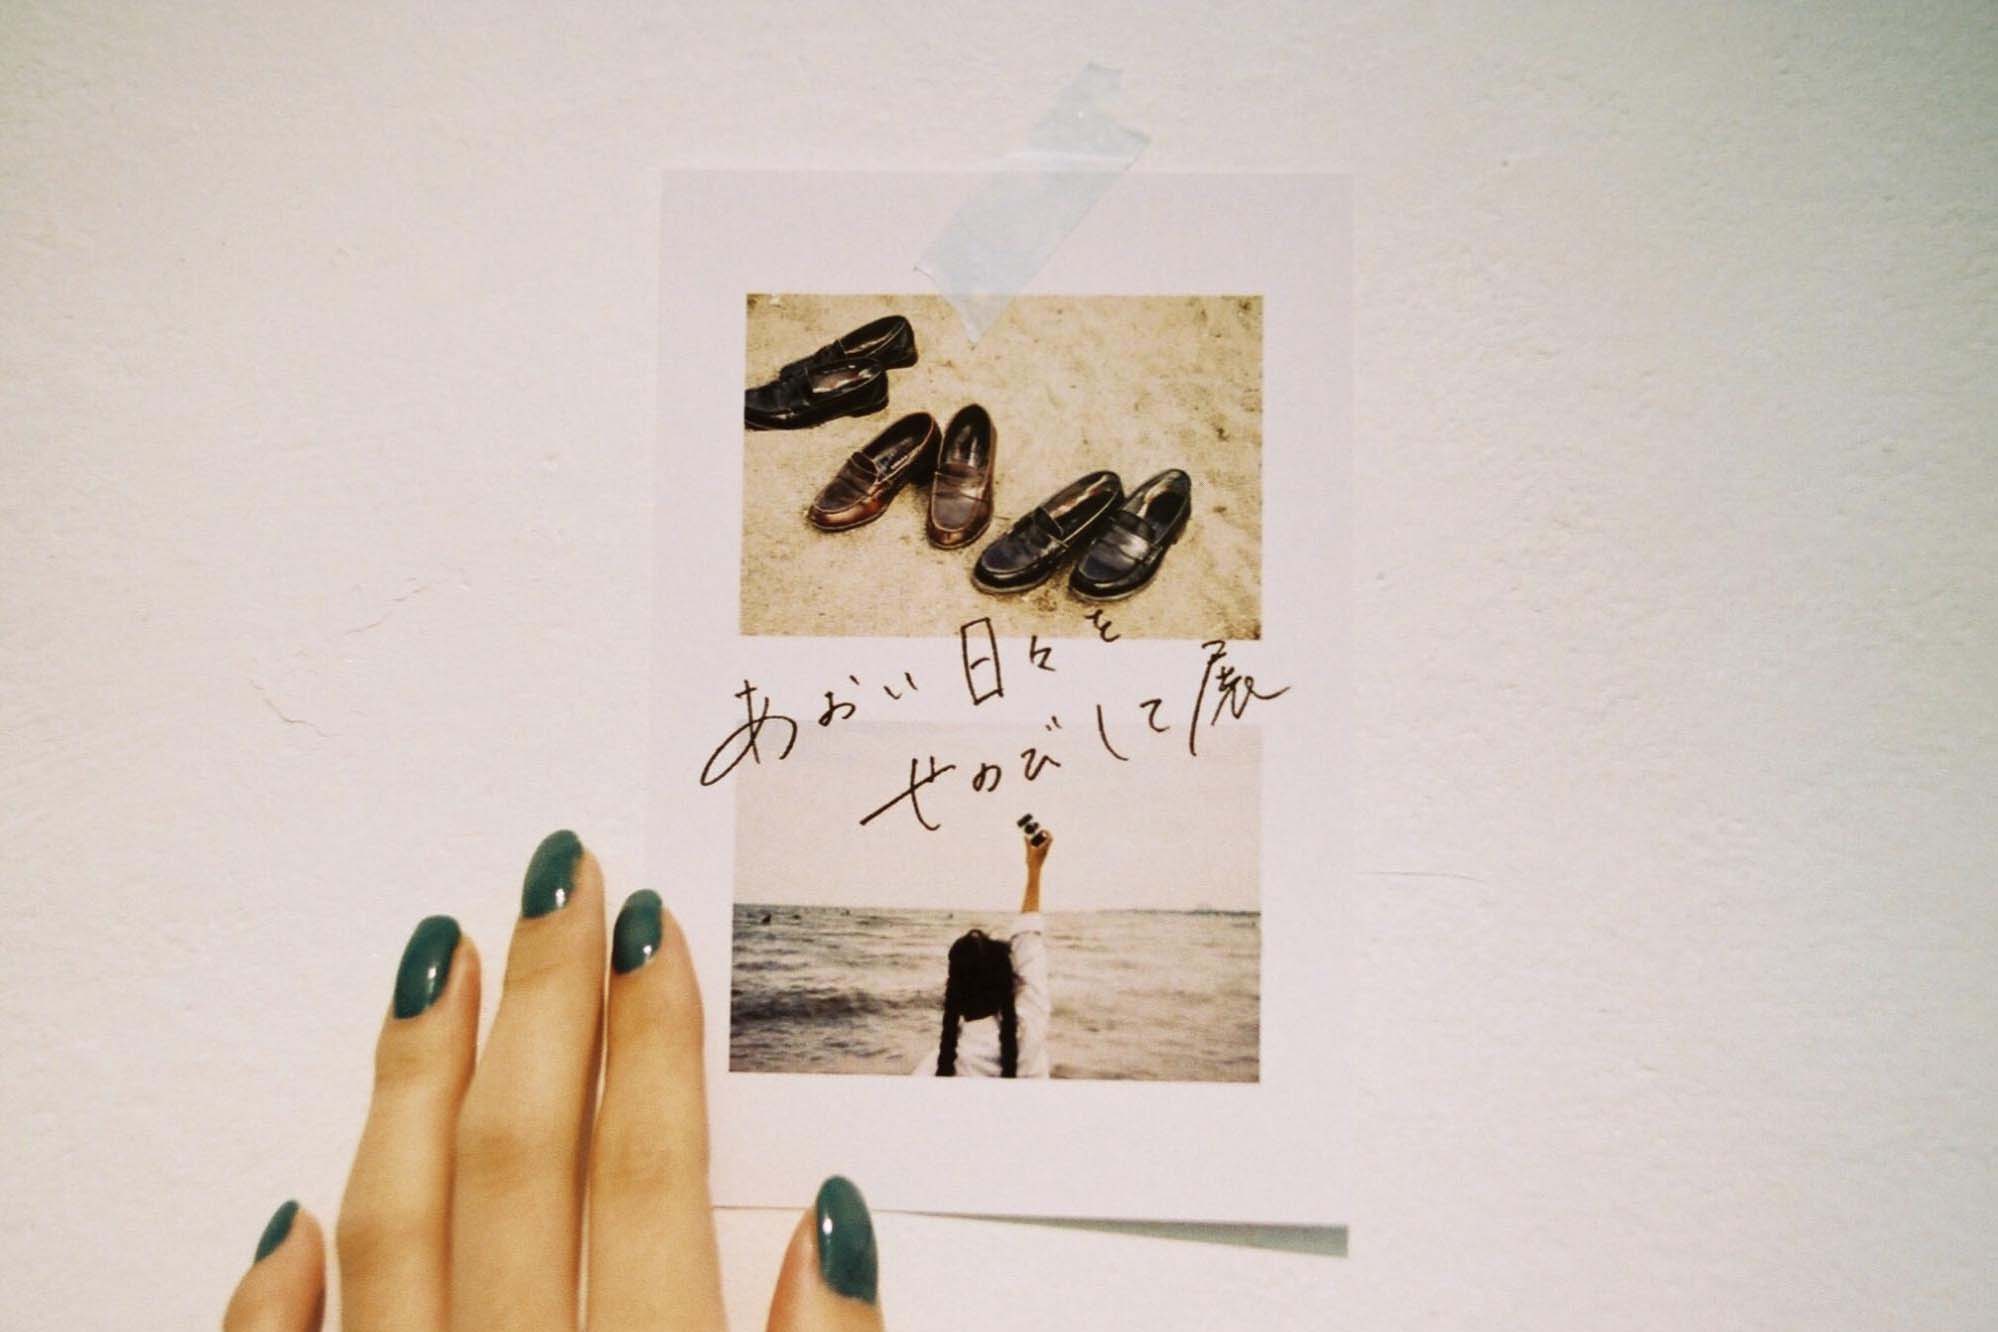 あおい日々を
せのびして展